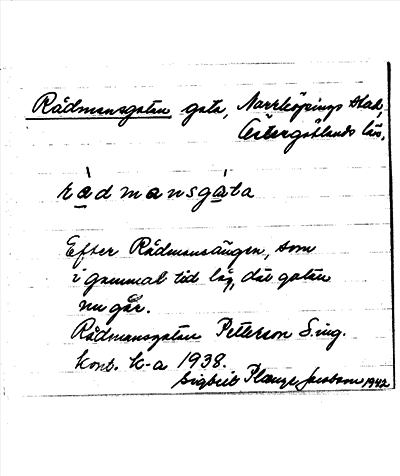 Rådmansgatan gata, Norrköpings stad,
Östergötlands län.
rådmansgáta
Efter Rådmansängen, som
i gammal tid låg, där gatan
nu går.
Rådmansgatan Petterson S.ing.
Kont. k-a 1938.
Sigbrit Plænge Jacobson 1942